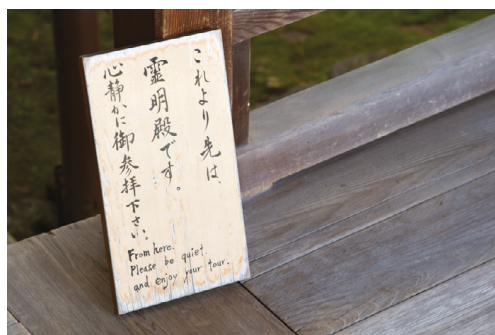 これより先は、
霊明殿です。
心静かに御参拝下さい。
From here.
Please be quiet.
and enjoy your tour.